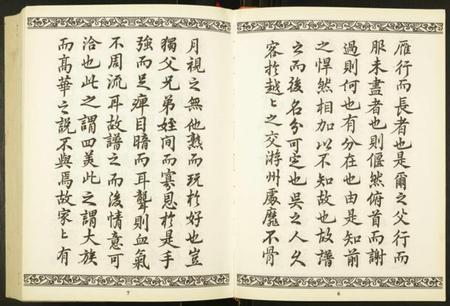 雁行而長者也是爾之父行而
服未盡者也則偃然俯首而謝
過則何也有分在也由是知前
之悍然相加以不知故也故譜
立而後名分可定也吳之人久
客於越上之交游州處靡不骨
6
月視之無他熟而玩於好也豈
獨父兄弟姪間而寡恩於是手
強而足痺目暗而耳聾則血氣
不周流耳故譜立而後情意可
洽也此之謂四美此之謂大族
而高華之說不與焉故家上有
7